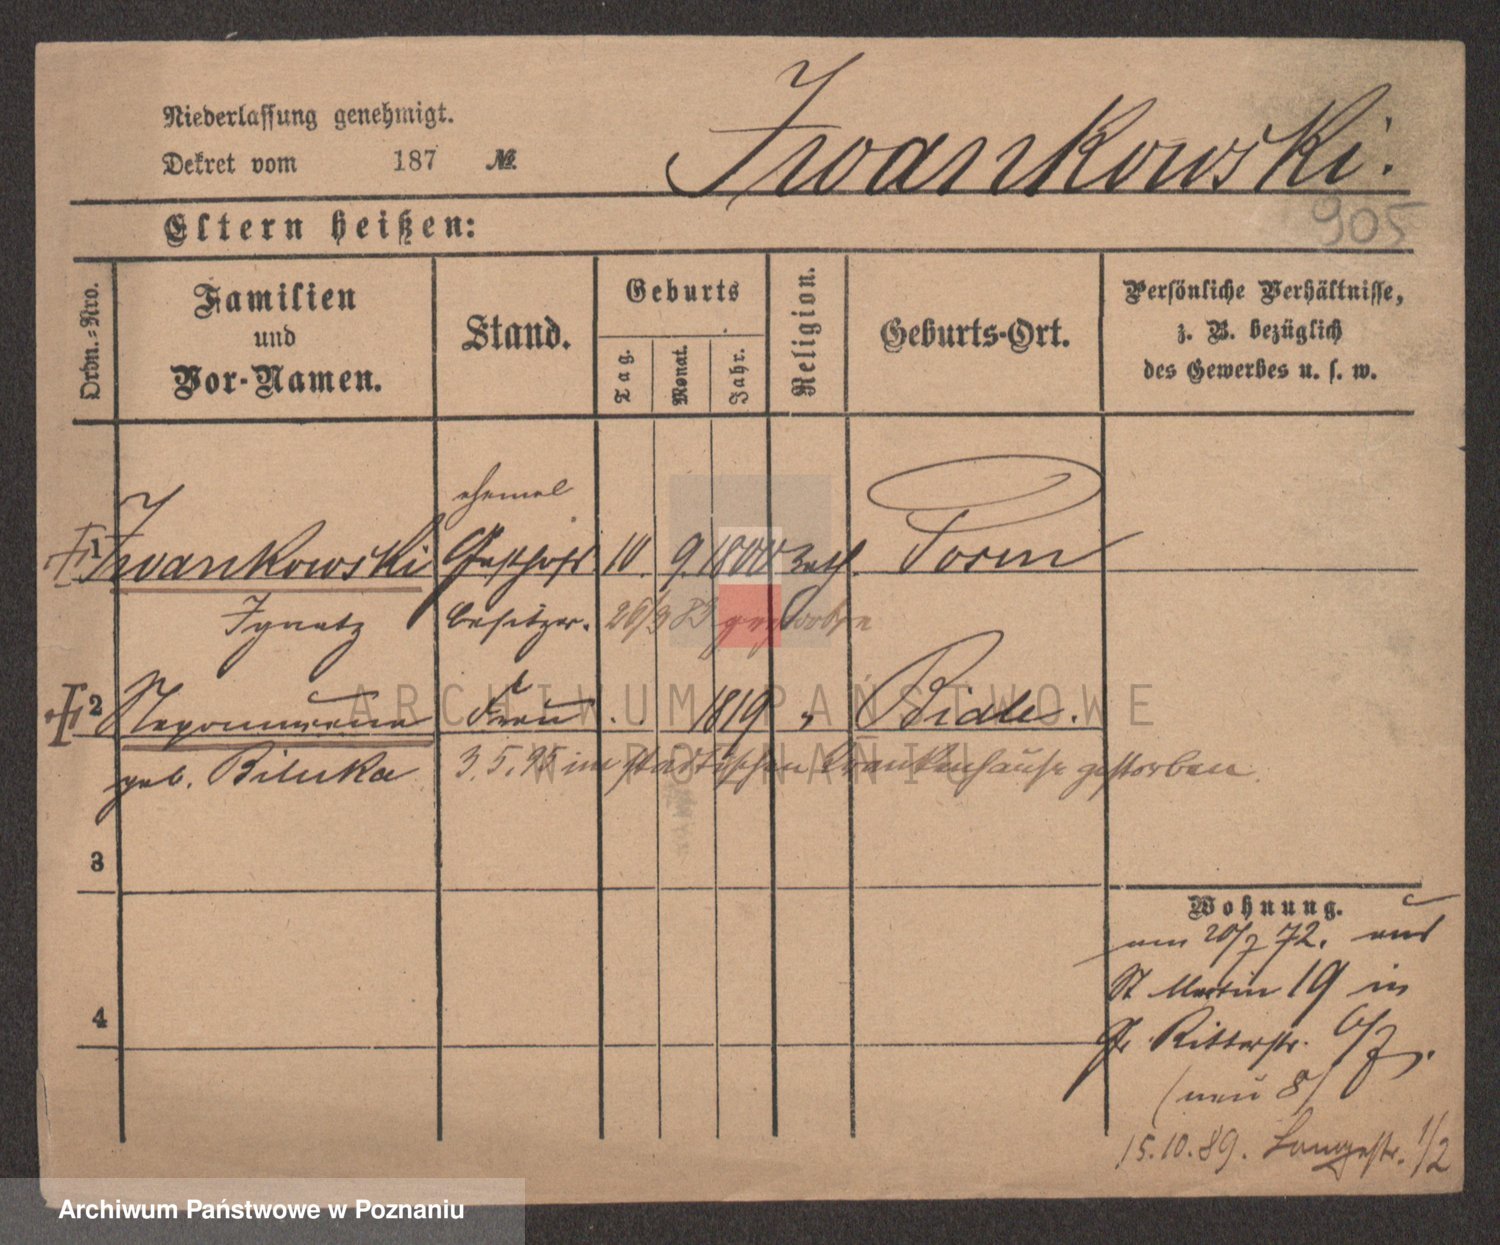 Niederlassung genehmigt.
Dekret vom 187 №
Iwankowski.
905
Eltern heißen:
Ordn.=Nro.
Familien
und
Vor-Namen.
Stand.
Geburts
Tag.
Monat.
Jahr.
Religion.
Geburts-Ort.
Persönliche Verhältnisse,
z. B. bezüglich
des Gewerbes u. s. w.
ehemal
1 Iwankowski Gasthofs 10. 9. 1800 kath.
Ignatz besitzer. 26/3 83 gestorben
2 Nepomucena Frau . . 1819 "
geb. Biluka 3.5.95 im städtischen Krankenhause gestorben.
3
4
Wohnung.
am 20/7 72. aus
St Martin 19 in
Gr. Ritterstr. 6/7.
(neu 8)
15.10.89. Langestr. 1/2
ARCHIWUM PAŃSTWOWE
W POZNANIU
Archiwum Państwowe w Poznaniu